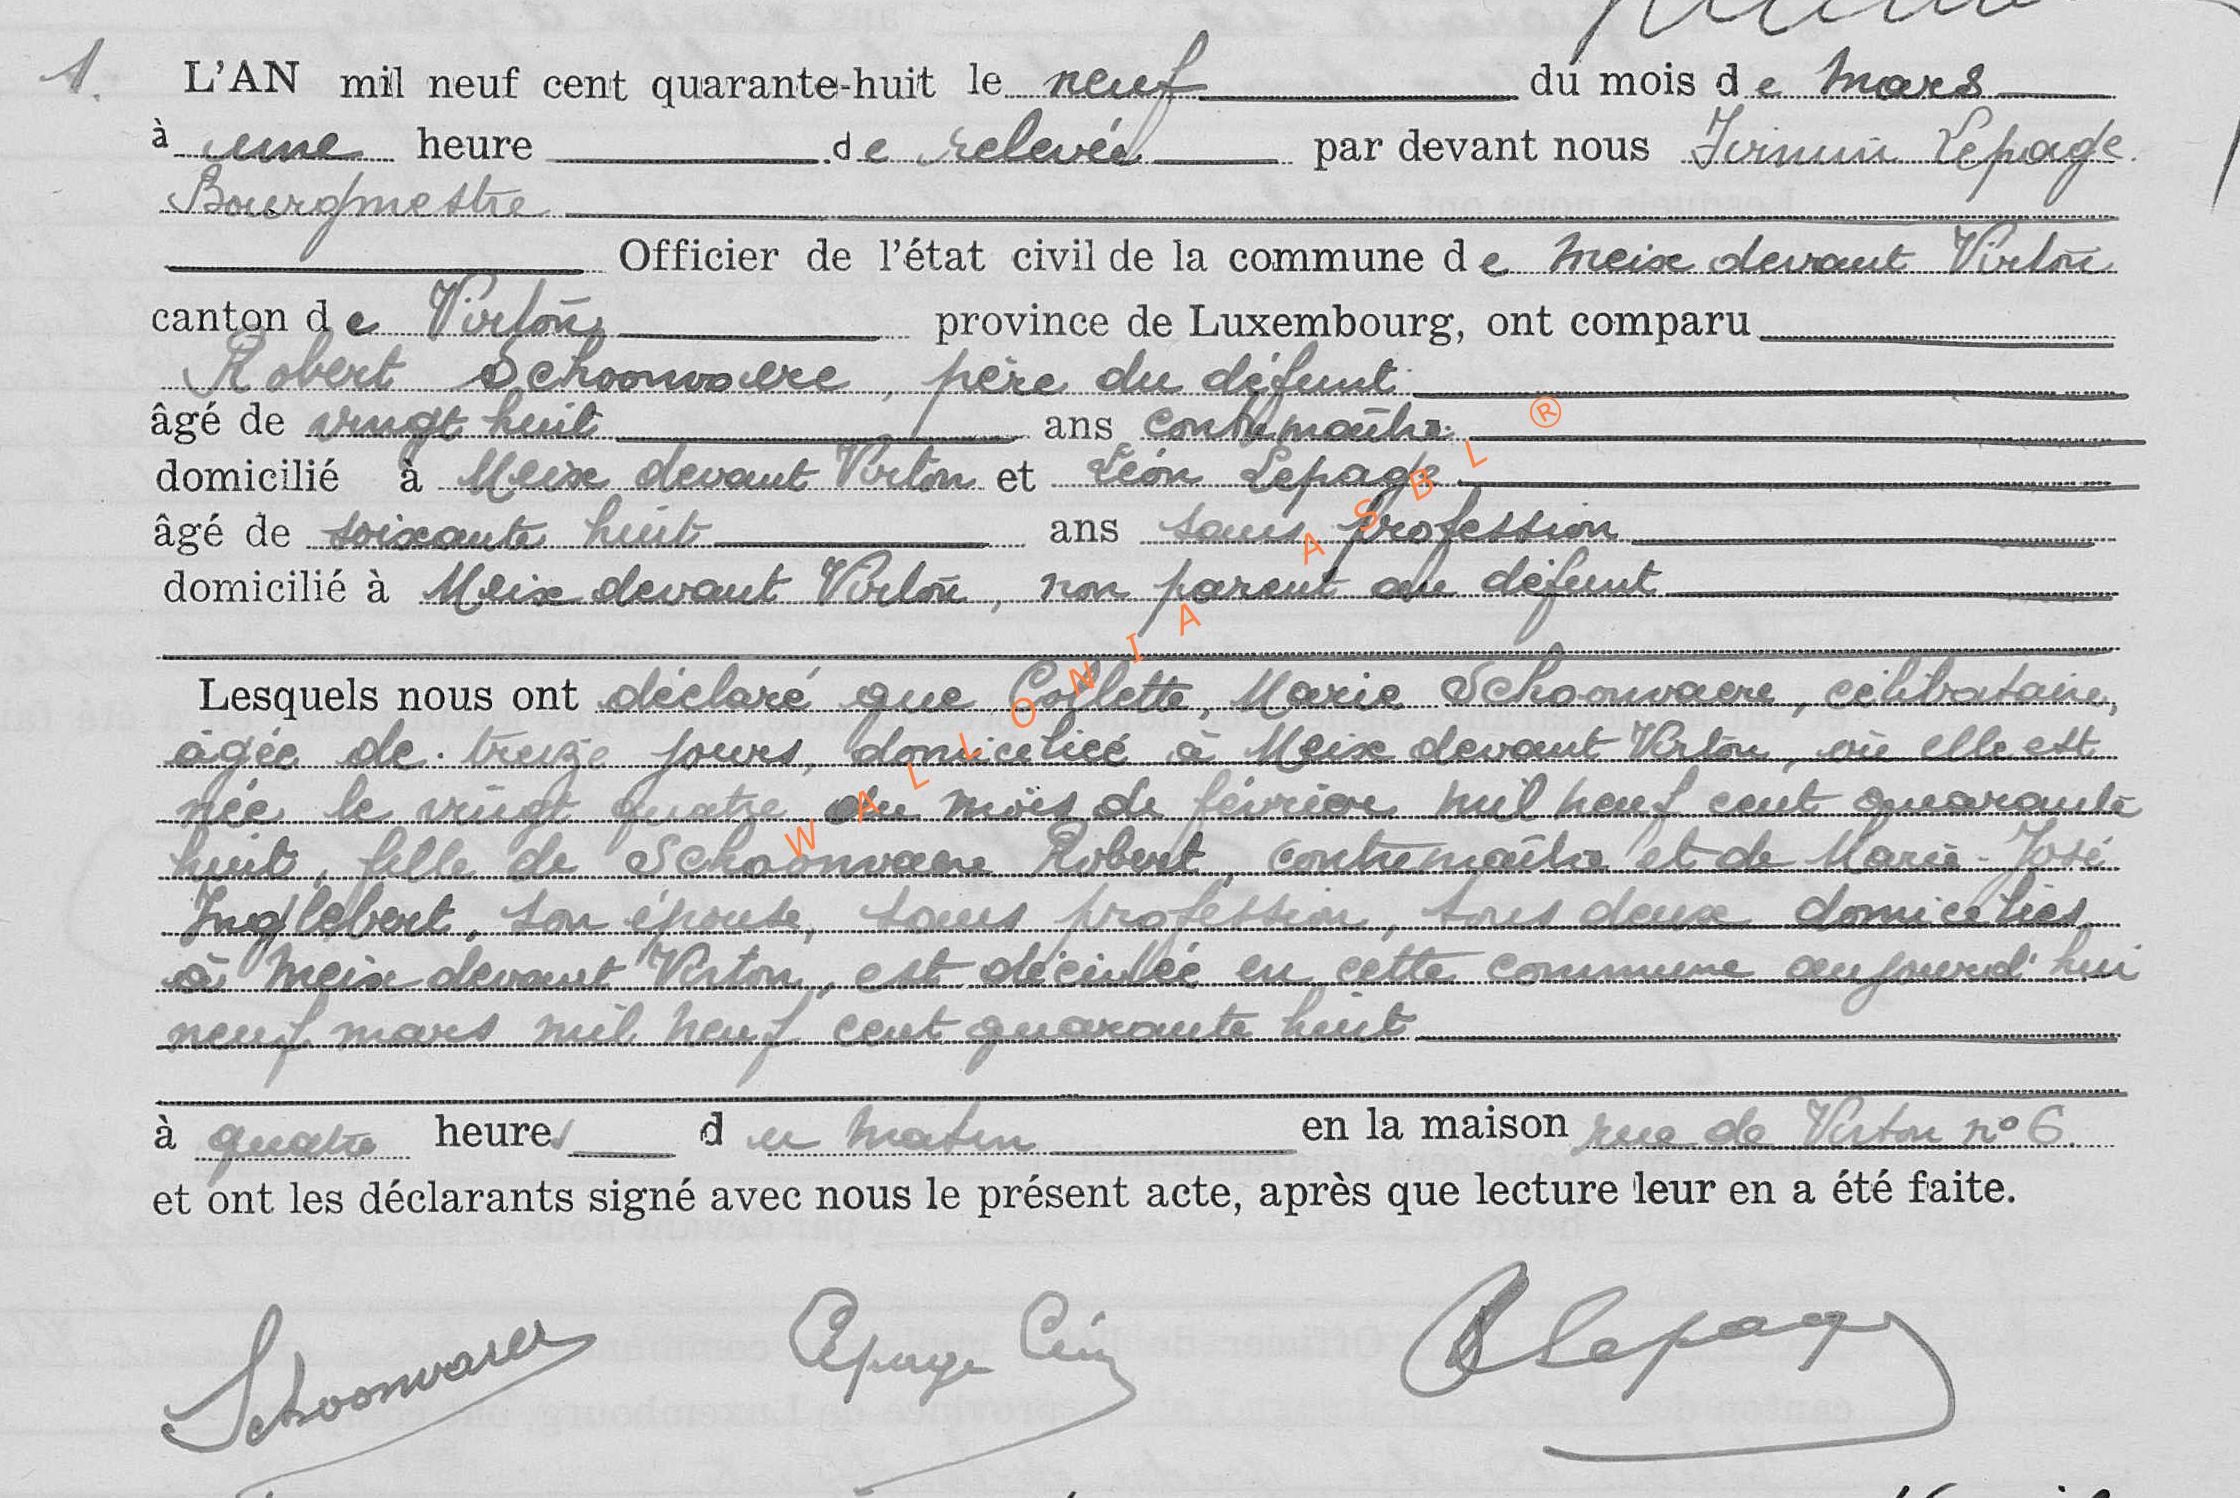 1. L'AN mil neuf cent quarante-huit le neuf du mois de mars
à une heure de relevée par devant nous Firmin Lepage.
Bourgmestre
Officier de l'état civil de la commune de Meix devant Virton
canton de Virton province de Luxembourg, ont comparu
Robert Schoonvaere, père du défunt
âgé de vingt huit ans contremaître
domicilié à Meix devant Virton et Léon Lepage
âgé de soixante huit ans sans profession
domicilié à Meix devant Virton, non parent au défunt
Lesquels nous ont déclaré que Collette, Marie Schoonvaere, célibataire,
âgée de treize jours, domiciliée à Meix devant Virton, où elle est
née le vingt quatre du mois de février mil neuf cent quarante
huit, fille de Schoonvaere Robert, contremaître et de Marie-José
Inglebert, son épouse, sans profession, tous deux domiciliés
à Meix devant Virton, est décédée en cette commune aujourd'hui
neuf mars mil neuf cent quarante huit
à quatre heures du matin en la maison rue de Virton n° 6.
et ont les déclarants signé avec nous le présent acte, après que lecture leur en a été faite.
Schoonvaere Lepage Léon Lepage
WALLONIA ASBL ®